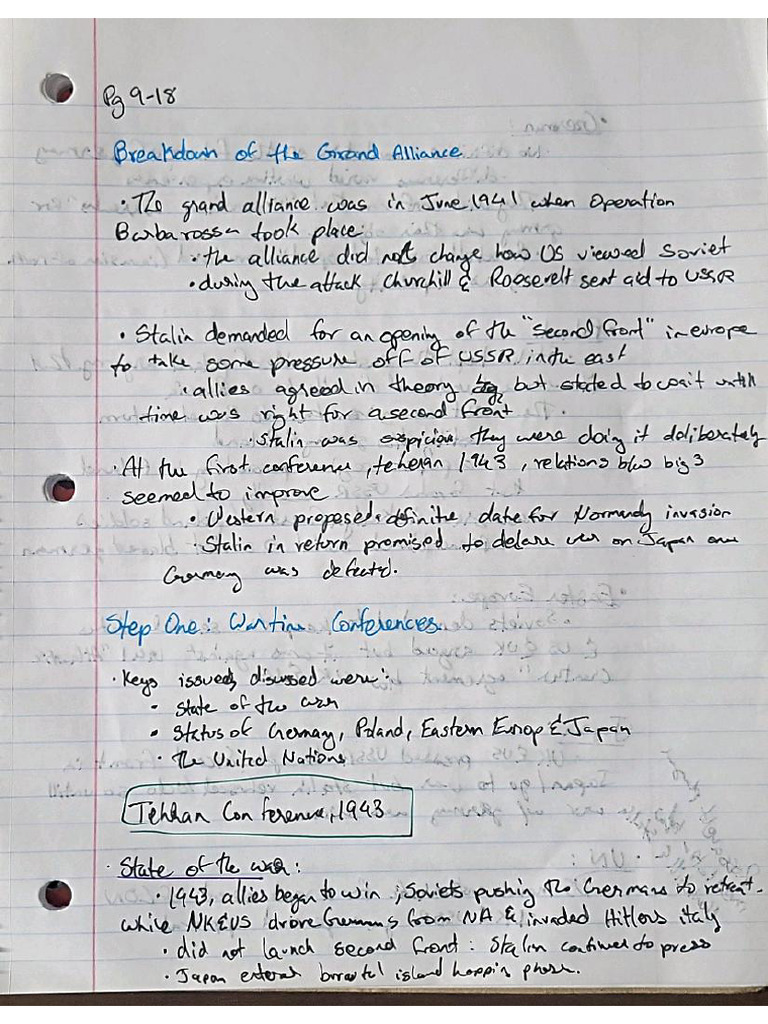 Pg 9-18
Breakdown of the Grand Alliance
• The grand alliance was in June, 1941 when Operation
Barbarossa took place
• the alliance did not change how US viewed Soviet
• during the attack Churchill & Roosevelt sent aid to USSR
• Stalin demanded for an opening of the "second front" in europe
to take some pressure off of USSR in the east
• allies agreed in theory but stated to wait until
time was right for a second front
• Stalin was suspicion they were doing it deliberately
• At the first conference, teheran 1943, relations b/w big 3
seemed to improve
• Western proposed definitive date for Normandy invasion
• Stalin in return promised to delare war on Japan once
Germany was defected.
Step One: Wartime Conferences
• Keys issued discussed were:
• State of the war
• Status of Germany, Poland, Eastern Europ & Japan
• the United Nations
Tehran Conference, 1943
• State of the war:
• 1943, allies began to win; Soviets pushing the Germans to retreat
while UK & US drove Germans from NA & invaded Hitlers italy
• did not launch second front: Stalin continued to press
• Japan entered island hoppin phase.